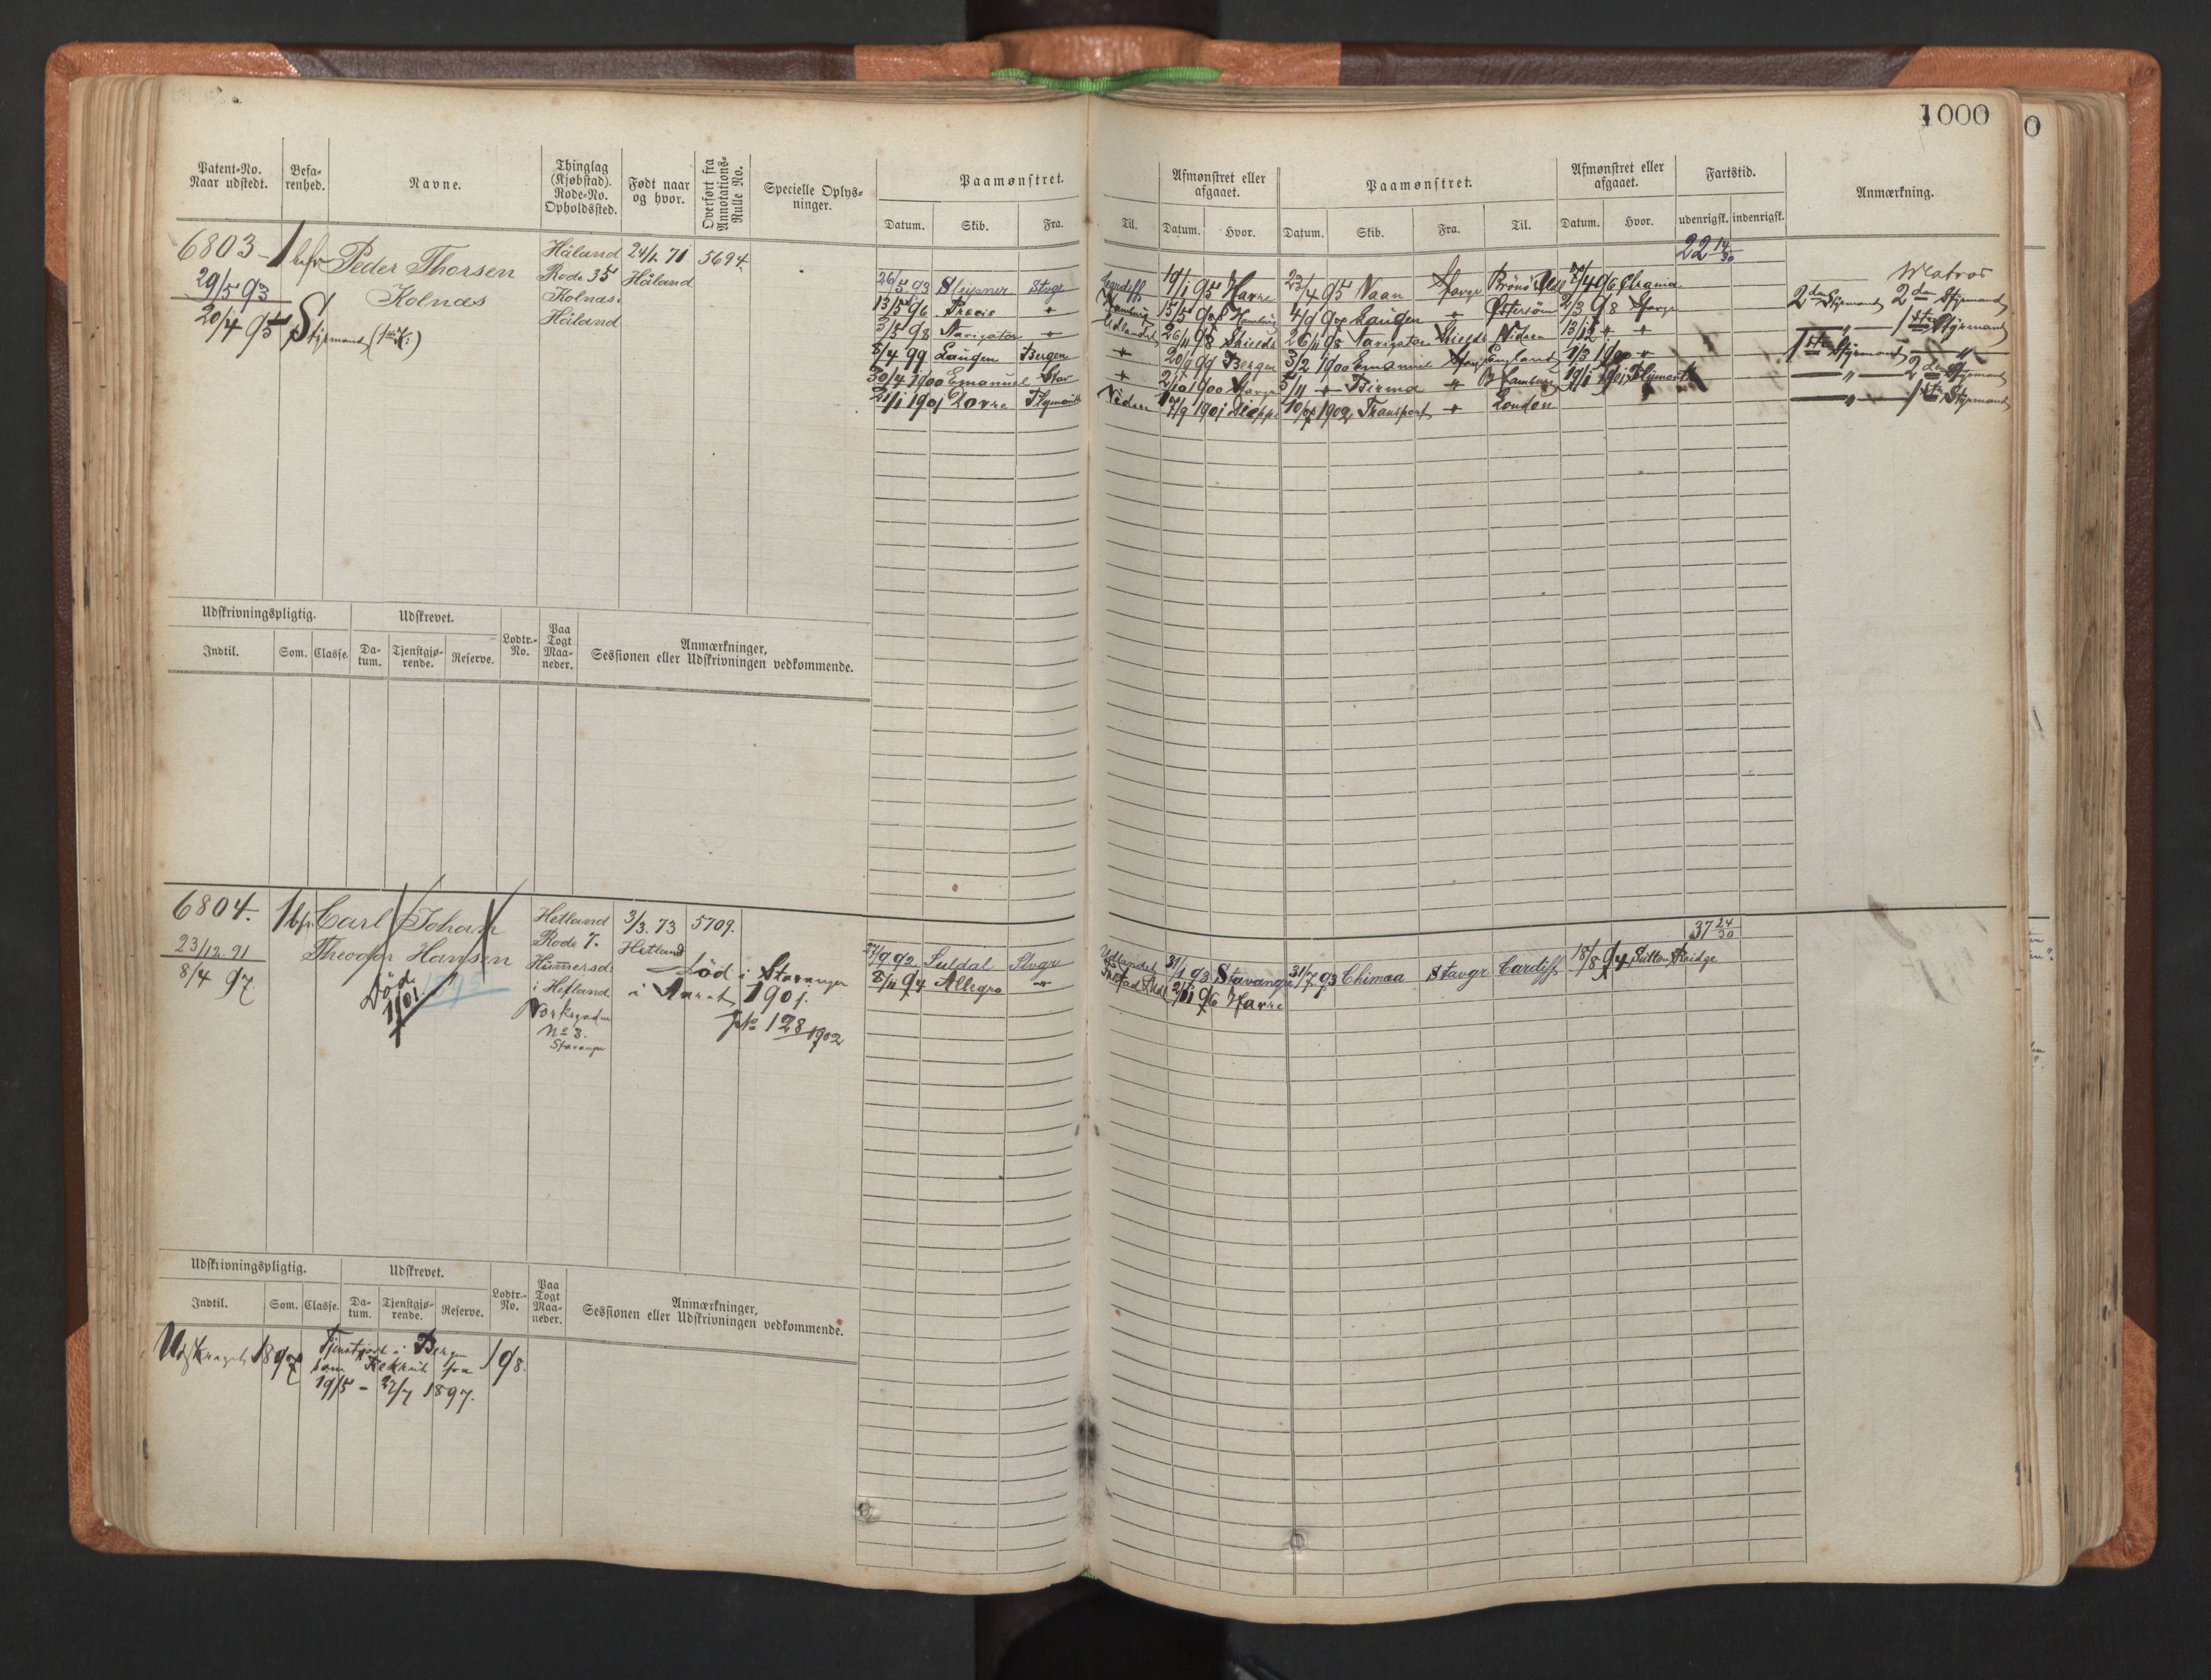 1000
Patent-No. Naar udstedt.
Befa-renhed.
Navne.
Thinglag (Kjøbstad). Rode-No. Opholdssted.
Født naar og hvor.
Overført fra Annotations-Rulle No.
Specielle Oplys-ninger.
Paamønstret.
Datum. Skib. Fra. Til.
Afmønstret eller afgaaet.
Datum. Hvor.
Paamønstret.
Datum. Skib. Fra. Til.
Afmønstret eller afgaaet.
Datum. Hvor.
Fartstid.
udenrigsk. indenrigsk.
Anmærkning.
6803
29/5 93
20/4 95
Styrmand
Peder Thorsen
Kolnæs
Håland
Rode 35
Kolnæs i
Håland
24/1. 71
Håland
5694.
22 14/30
26/5 93 Sleipner Stvgr Cardiff 19/1 95 Havre 23/4 95 Naan Stavgr 7/4 96 Chrania Matros
13/5 96 Præcis + Hamburg 15/5 Hamburg 4/9 Laugen + Østersøen 2/3 98 Stavgr 2den Styrmand 2den Styrmand
3/5 98 Navigatør + Udlandet 26/11 98 Shields 26/11 98 Navigatør Shields Niden 13/12 + + 1ste Styrmand
5/4 99 Laugen Bergen + 99 Bergen 3/2 1900 Emanuel Stavgr England 1/3 1900 + 1ste Styrmand
30/4 1900 Emanuel Stav + 2/10 1900 Stavgr 5/11 + Birma Hamburg 19/1 1901 Plymouth 2den Styrmand
21/1 1901 Dovre Plymouth 17/9 1901 Dieppe 1902 Transport + London 1ste Styrmand
Udskrivningspligtig.
Udskrevet.
Indtil. Som. Classe. Da-tum. Tjenstgjø-rende. Reserve.
Lodtr.-No.
Paa Togt Maa-neder.
Anmærkninger, Sessionen eller Udskrivningen vedkommende.
6804.
23/12. 91
8/4 97
Carl Johan
Theodor Hansen
Død
1901
Hetland
Rode 7.
i Hetland
No 8.
Stavanger
3/3. 73
Hetland
5709.
Død i Stavanger
1901.
No 128 1902
37 24/30
27/9 92 Suldal Stvgr Udlandet 31/1 93 Stavanger 31/7 93 Chimaa Stavgr Cardiff 18/8 94 Sutton Bridge
8/11 94 Allegro " 2/11 96 Havre
Udskrivningspligtig.
Udskrevet.
Indtil. Som. Classe. Da-tum. Tjenstgjø-rende. Reserve.
Lodtr.-No.
Paa Togt Maa-neder.
Anmærkninger, Sessionen eller Udskrivningen vedkommende.
1897
Tjenstgjort i Bergen
som Rekrut fra
19/5 - 27/7 1897.
198.